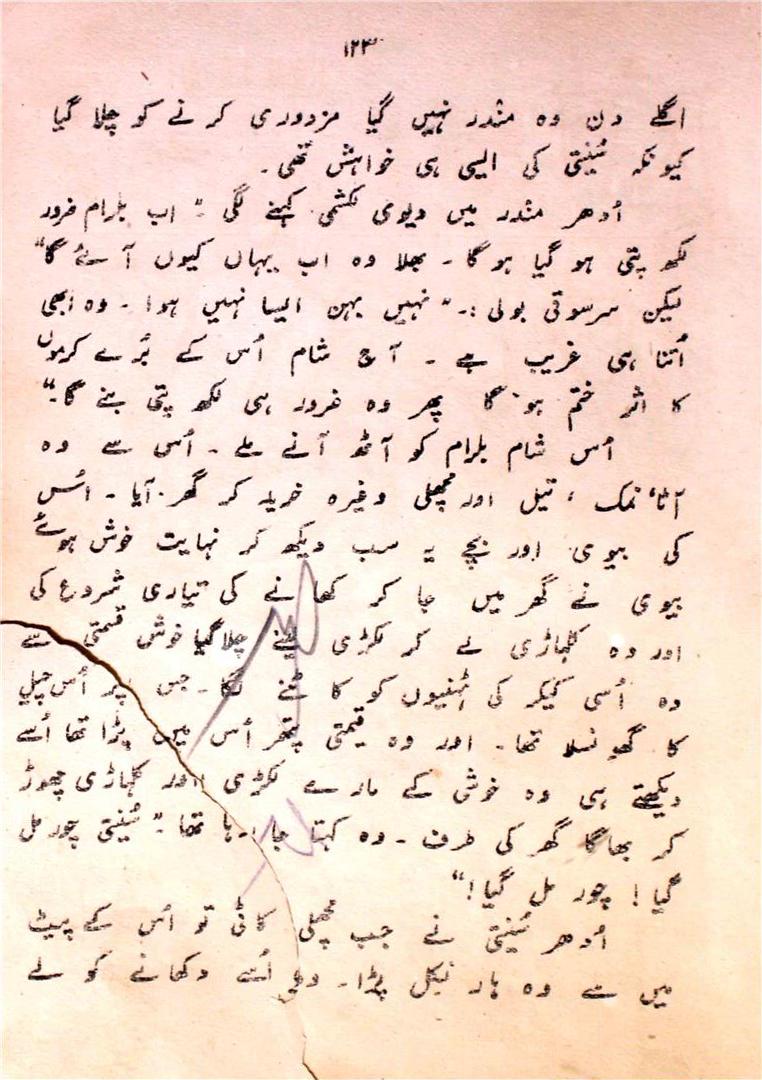 ۱۲۳
اگلے دن وہ مندر نہیں گیا مزدوری کرنے کو چلا گیا
کیونکہ سُنیتی کی ایسی ہی خواہش تھی۔
اُدھر مندر میں دیوی لکشمی کہنے لگی "اب بلرام ضرور
لکھ پتی ہو گیا ہوگا۔ بھلا وہ اب یہاں کیوں آئے گا"
لیکن سرسوتی بولی :۔ "نہیں بہن ایسا نہیں ہوا۔ وہ ابھی
اُتنا ہی غریب ہے۔ آج شام اُس کے بُرے کرموں
کا اثر ختم ہوگا پھر وہ ضرور ہی لکھ پتی بنے گا۔"
اُس شام بلرام کو آٹھ آنے ملے۔ اُس سے وہ
آٹا، نمک، تیل اور مچھلی وغیرہ خرید کر گھر آیا۔ اُس
کی بیوی اور بچے یہ سب دیکھ کر نہایت خوش ہوئے
بیوی نے گھر میں جا کر کھانے کی تیاری شروع کی
اور وہ کلہاڑی لے کر لکڑی لینے چلا گیا خوش قسمتی سے
وہ اُسی کیکر کی ٹہنیوں کو کاٹنے لگا۔ جس پر اُس چیل
کا گھونسلا تھا۔ اور وہ قیمتی پتھر اُس میں پڑا تھا اُسے
دیکھتے ہی وہ خوشی کے مارے لکڑی اور کلہاڑی چھوڑ
کر بھاگا گھر کی طرف۔ وہ کہتا جا رہا تھا۔ "سُنیتی چور مل
گیا! چور مل گیا!"
اُدھر سُنیتی نے جب مچھلی کاٹی تو اُس کے پیٹ
میں سے وہ ہار نکل پڑا۔ وہ اُسے دکھانے کو لے